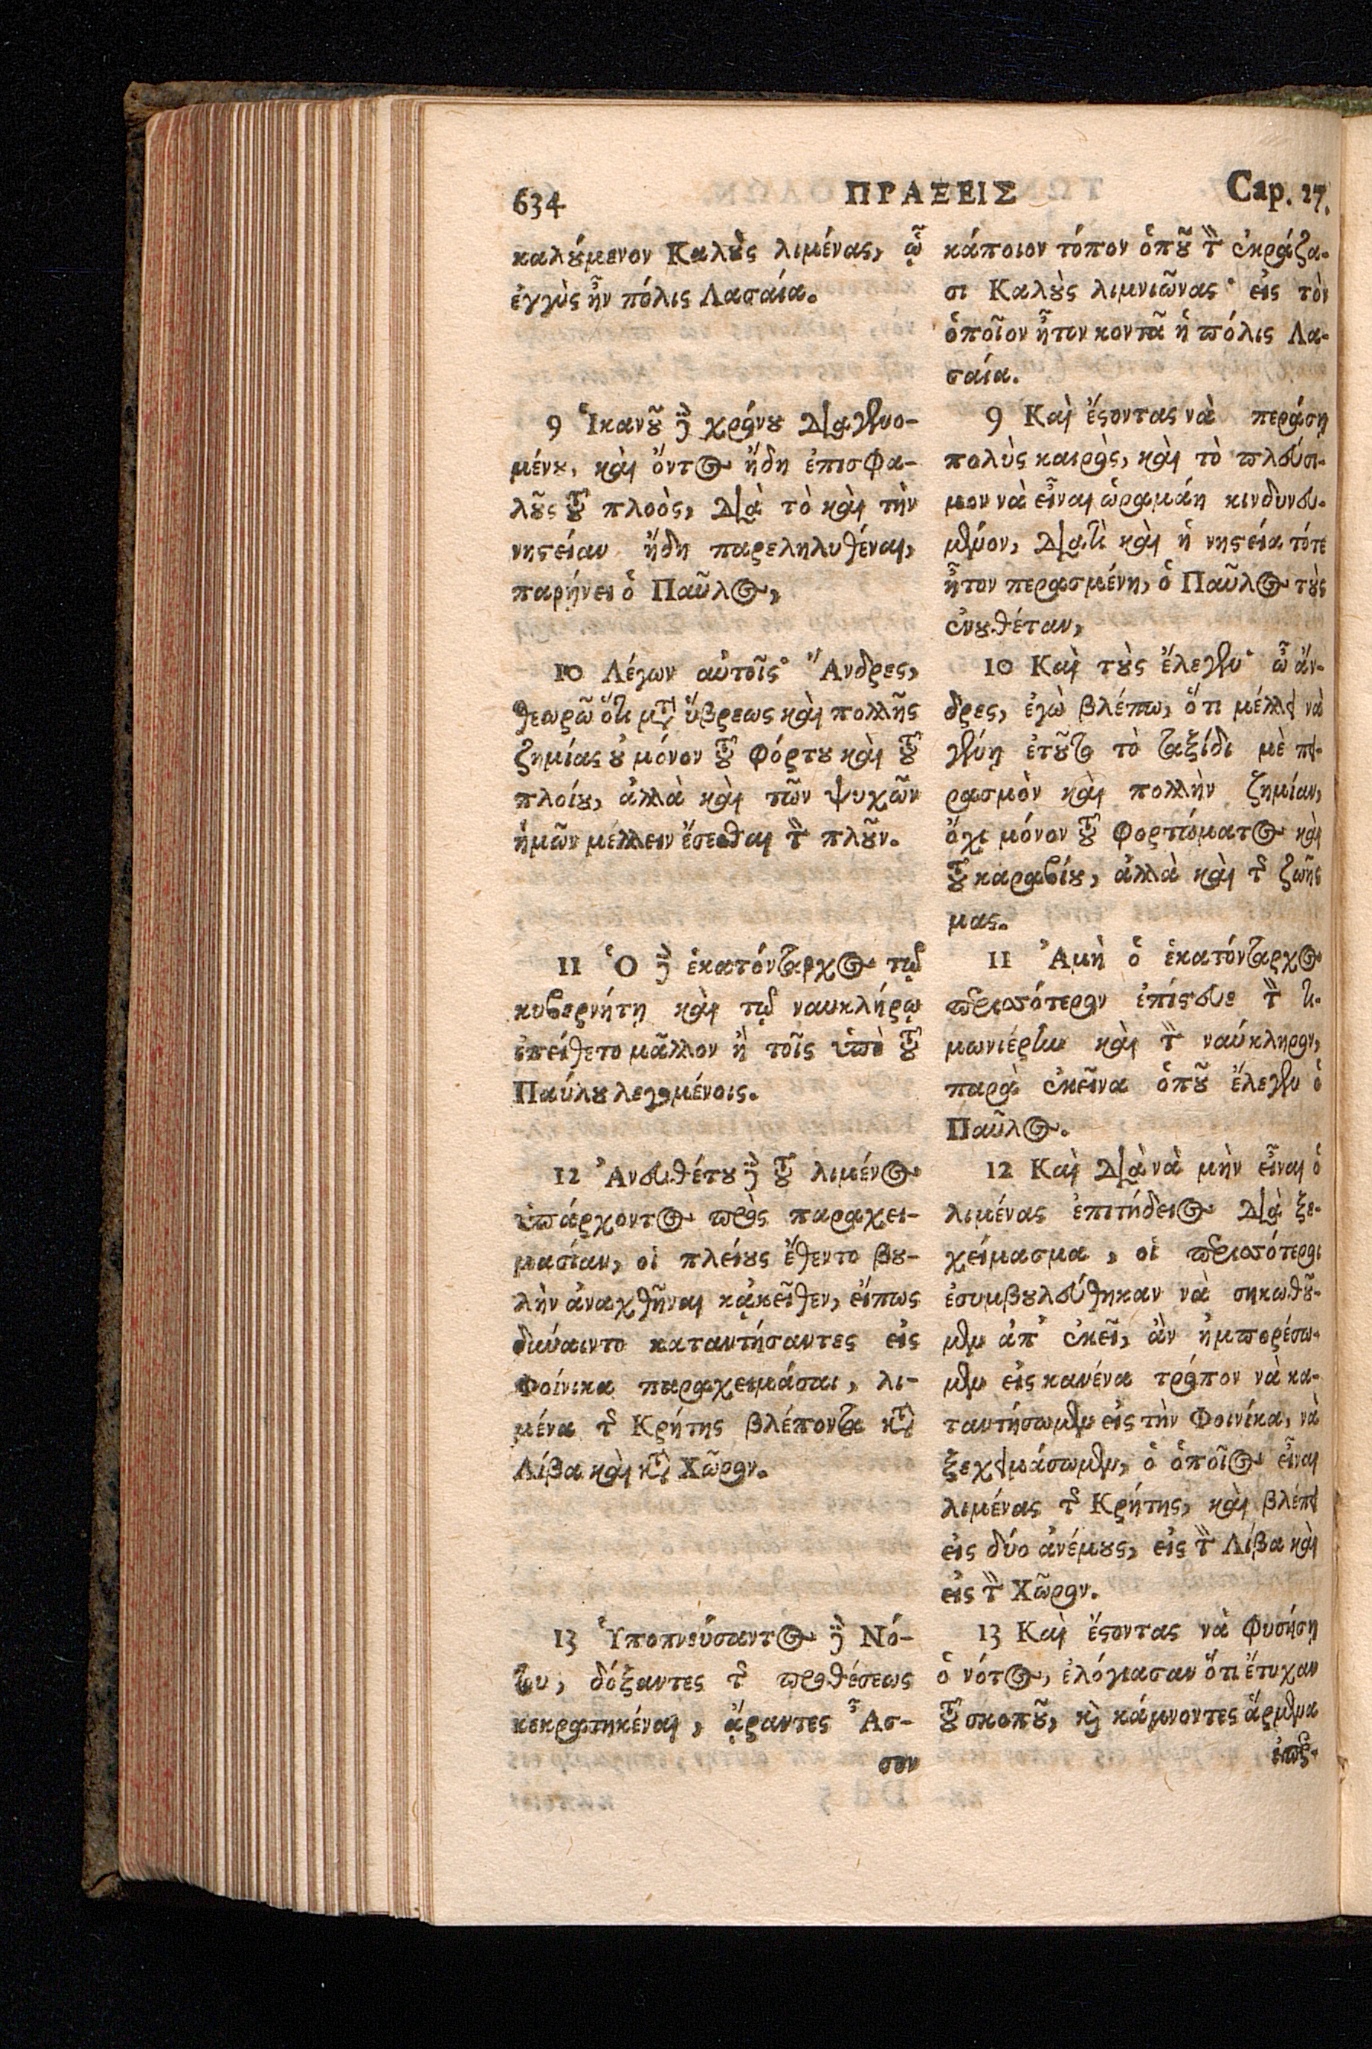 634 ΠΡΑΞΕΙΣ Cap. 27.
καλούμενον Καλοὺς λιμένας, ᾧ
ἐγγὺς ἦν πόλις Λασαία.
9 Ἱκανοῦ δὲ χρόνου διαγενο-
μένου, καὶ ὄντος ἤδη ἐπισφα-
λοῦς τοῦ πλοὸς, διὰ τὸ καὶ τὴν
νηστείαν ἤδη παρεληλυθέναι,
παρῄνει ὁ Παῦλος,
10 Λέγων αὐτοῖς· Ἄνδρες,
θεωρῶ ὅτι μετὰ ὕβρεως καὶ πολλῆς
ζημίας οὐ μόνον τοῦ φόρτου καὶ τοῦ
πλοίου, ἀλλὰ καὶ τῶν ψυχῶν
ἡμῶν μέλλειν ἔσεσθαι τὸν πλοῦν.
11 Ὁ δὲ ἑκατόνταρχος τῷ
κυβερνήτῃ καὶ τῷ ναυκλήρῳ
ἐπείθετο μᾶλλον ἢ τοῖς ὑπὸ τοῦ
Παύλου λεγομένοις.
12 Ἀνευθέτου δὲ τοῦ λιμένος
ὑπάρχοντος πρὸς παραχει-
μασίαν, οἱ πλείους ἔθεντο βου-
λὴν ἀναχθῆναι κᾀκεῖθεν, εἴπως
δύναιντο καταντήσαντες εἰς
Φοίνικα παραχειμάσαι, λι-
μένα τῆς Κρήτης βλέποντα κατὰ
Λίβα καὶ κατὰ Χῶρον.
13 Ὑποπνεύσαντος δὲ Νό-
του, δόξαντες τῆς προθέσεως
κεκρατηκέναι, ἄραντες Ἆσ-
σον
κάποιον τόπον ὁποῦ τὸν ἐκράζα-
σι Καλοὺς λιμνιῶνας· εἰς τὸν
ὁποῖον ἦτον κοντὰ ἡ πόλις Λα-
σαία.
9 Καὶ ἔστοντας νὰ περάσῃ
πολὺς καιρὸς, καὶ τὸ πλεύσι-
μον νὰ εἶναι ὡραμάη κινδυνευ-
μένον, διατὶ καὶ ἡ νηστεία τότε
ἦτον περασμένη, ὁ Παῦλος τοὺς
ἐνουθέταν,
10 Καὶ τοὺς ἔλεγεν· ὦ ἄν-
δρες, ἐγὼ βλέπω, ὅτι μέλλει νὰ
γένῃ ἐτοῦτο τὸ ταξίδι μὲ πει-
ρασμὸν καὶ πολλὴν ζημίαν,
ὄχι μόνον τοῦ φορτώματος καὶ
τοῦ καραβίου, ἀλλὰ καὶ τῆς ζωῆς
μας.
11 Ἀμὴ ὁ ἑκατόνταρχος
περισσότερον ἐπίστευε τὸν τι-
μωνιέρην καὶ τὸν ναύκληρον,
παρὰ ἐκεῖνα ὁποῦ ἔλεγεν ὁ
Παῦλος.
12 Καὶ διὰ νὰ μὴν εἶναι ὁ
λιμένας ἐπιτήδειος διὰ ξε-
χείμασμα, οἱ περισσότεροι
ἐσυμβουλεύθηκαν νὰ σηκωθοῦ-
μεν ἀπ' ἐκεῖ, ἂν ἠμπορέσω-
μεν εἰς κανένα τρόπον νὰ κα-
ταντήσωμεν εἰς τὴν Φοινίκα, νὰ
ξεχειμάσωμεν, ὁ ὁποῖος εἶναι
λιμένας τῆς Κρήτης, καὶ βλέπει
εἰς δύο ἀνέμους, εἰς τὸν Λίβα καὶ
εἰς τὸν Χῶρον.
13 Καὶ ἔστοντας νὰ φυσήσῃ
ὁ νότος, ἐλόγιασαν ὅτι ἔτυχαν
τοῦ σκοποῦ, καὶ κάμνοντες ἄρμενα
ἐπερ-